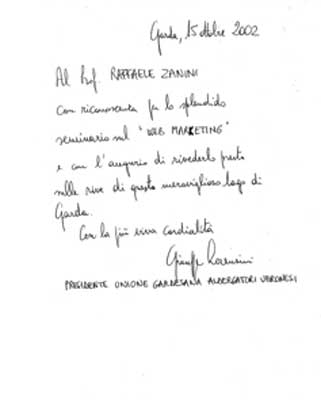 Garda, 15 ottobre 2002
Al Prof. RAFFAELE ZANINI
con riconoscenza per lo splendido
seminario sul "WEB MARKETING"
e con l'augurio di rivederlo presto
sulle rive di questo meraviglioso lago di
Garda.
Con la più viva cordialità
Lorenzini
PRESIDENTE UNIONE GARDESANA ALBERGATORI VERONESI